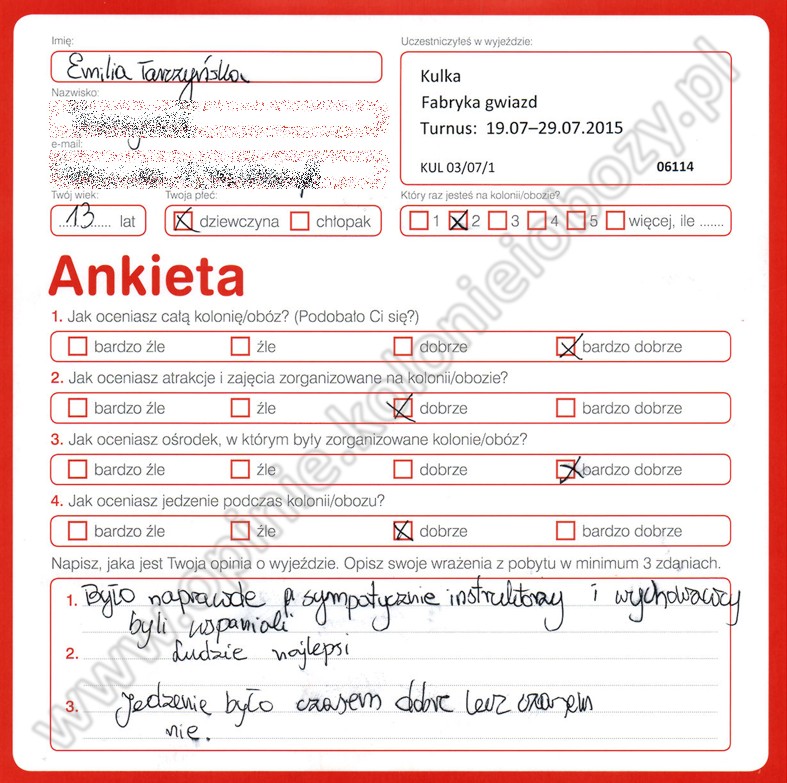 Imię:
Emilia Tarczyńska
Uczestniczyłeś w wyjeździe:
Kulka
Fabryka gwiazd
Turnus: 19.07–29.07.2015
KUL 03/07/1 06114
Nazwisko:
e-mail:
Twój wiek:
13 lat
Twoja płeć:
dziewczyna chłopak
Który raz jesteś na kolonii/obozie?
1 2 3 4 5 więcej, ile .......
Ankieta
1. Jak oceniasz całą kolonię/obóz? (Podobało Ci się?)
bardzo źle źle dobrze bardzo dobrze
2. Jak oceniasz atrakcje i zajęcia zorganizowane na kolonii/obozie?
bardzo źle źle dobrze bardzo dobrze
3. Jak oceniasz ośrodek, w którym były zorganizowane kolonie/obóz?
bardzo źle źle dobrze bardzo dobrze
4. Jak oceniasz jedzenie podczas kolonii/obozu?
bardzo źle źle dobrze bardzo dobrze
Napisz, jaka jest Twoja opinia o wyjeździe. Opisz swoje wrażenia z pobytu w minimum 3 zdaniach.
1. Było naprawde sympatycznie instruktorzy i wychowawcy
byli wspaniali
2. Ludzie najlepsi
3. Jedzenie było czasem dobre lecz czasem
nie.
www.opinie.kolonieiobozy.pl